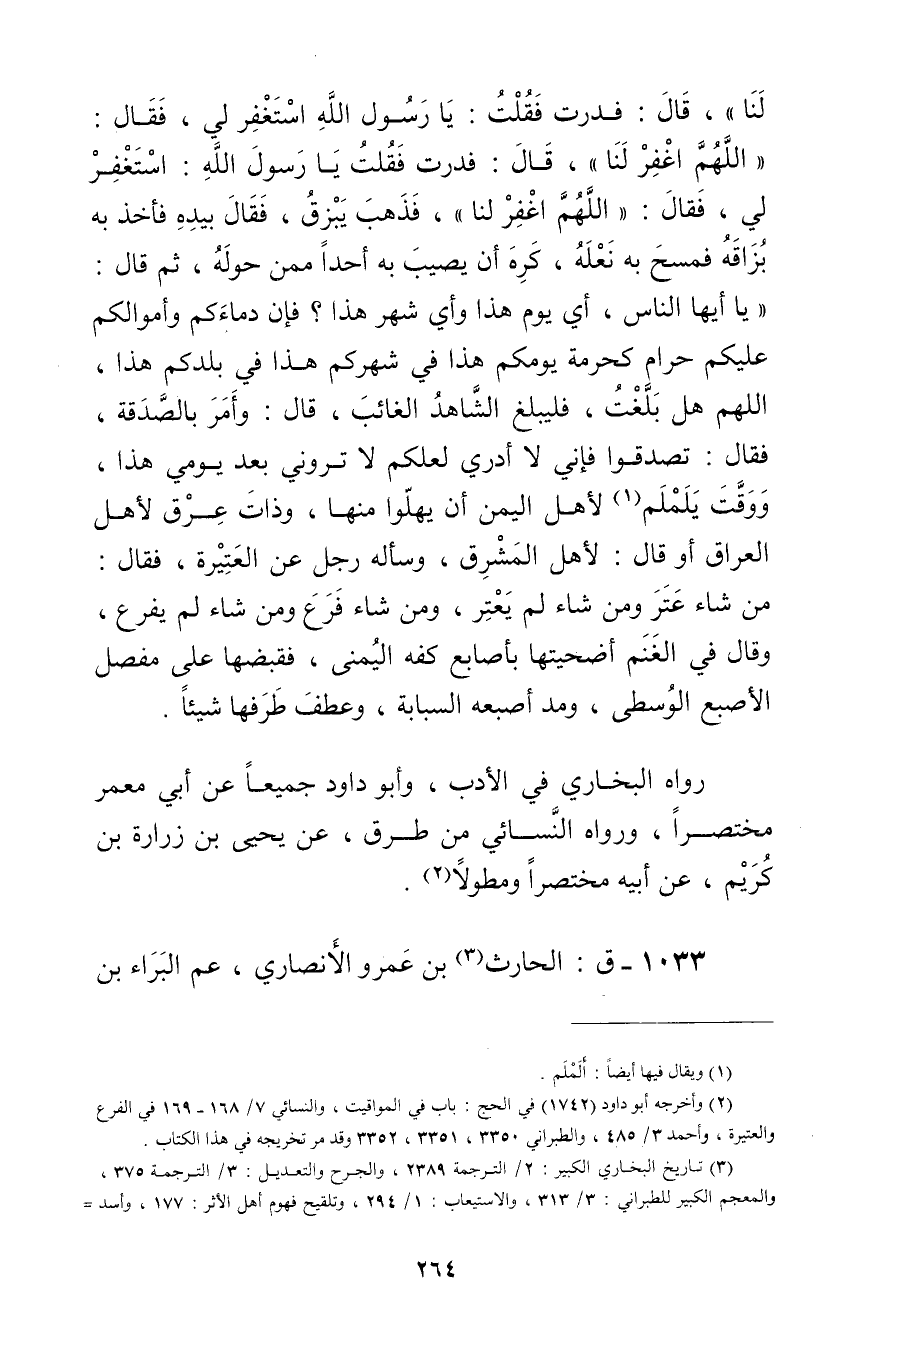 لَنَا » ، قَالَ : فـدرت فَقُلْتُ : يَا رَسُـول اللَّهِ اسْتَغْفِر لي ، فَقَـال :
« اللَّهُمَّ اغْفِرْ لَنَا » ، قَـالَ : فدرت فَقُلتُ يَـا رسولَ اللَّهِ : اسْتَغْفِـرْ
لي ، فَقالَ : « اللَّهُمَّ اغْفِرْ لنا » ، فَذَهبَ يَبْزقُ ، فَقَالَ بيدِهِ فأخذ به
بُزَاقَهُ فمسحَ به نَعْلَهُ ، كَرِهَ أن يصيبَ به أحداً ممن حولَهُ ، ثم قال :
« يا أيها الناس ، أي يوم هذا وأي شهر هذا ؟ فإن دماءَكم وأموالكم
عليكم حرام كحرمة يومكم هذا في شهركم هـذا في بلدكم هذا ،
اللهم هل بَلَّغْتُ ، فليبلغ الشَّاهدُ الغائبَ ، قال : وأَمَرَ بالصَّدَقة ،
فقال : تصدقـوا فإني لا أدري لعلكم لا تـروني بعد يـومي هذا ،
وَوَقَّتَ يَلَمْلَم(١) لأهـل اليمن أن يهلّوا منهـا ، وذاتَ عِـرْق لأهـل
العراق أو قال : لأهل المَشْرِق ، وسأله رجل عن العَتِيْرة ، فقال :
من شاء عَتَرَ ومن شاء لم يَعْتِر ، ومن شاء فَرَعَ ومن شاء لم يفرع ،
وقال في الغَنَم أضحيتها بأصابع كفه اليُمنى ، فقبضها على مفصل
الأصبع الوُسطى ، ومد أصبعه السبابة ، وعطفَ طَرَفها شيئاً .
رواه البخـاري في الأدب ، وأبو داود جميعـاً عن أبي معمر
مختصـراً ، ورواه النَّسـائي من طـرق ، عن يحيى بن زرارة بن
كُرَيْم ، عن أبيه مختصراً ومطولاً(٢) .
١٠٣٣ ـ ق : الحارث(٣) بن عَمرو الأَنصاري ، عم البَرَاء بن
(١) ويقال فيها أيضاً : أَلَمْلَم .
(٢) وأخرجه أبو داود (١٧٤٢) في الحج : باب في المواقيت ، والنسائي ٧/ ١٦٨ ـ ١٦٩ في الفرع
والعتيرة ، وأحمد ٣/ ٤٨٥ ، والطبراني ٣٣٥٠ ، ٣٣٥١ ، ٣٣٥٢ وقد مر تخريجه في هذا الكتاب .
(٣) تـاريخ البخـاري الكبير : ٢/ التـرجمة ٢٣٨٩ ، والجـرح والتعـديـل : ٣/ التـرجمـة ٣٧٥ ،
والمعجم الكبير للطبراني : ٣/ ٣١٣ ، والاستيعاب : ١/ ٢٩٤ ، وتلقيح فهوم أهل الأثر : ١٧٧ ، وأسد =
٢٦٤